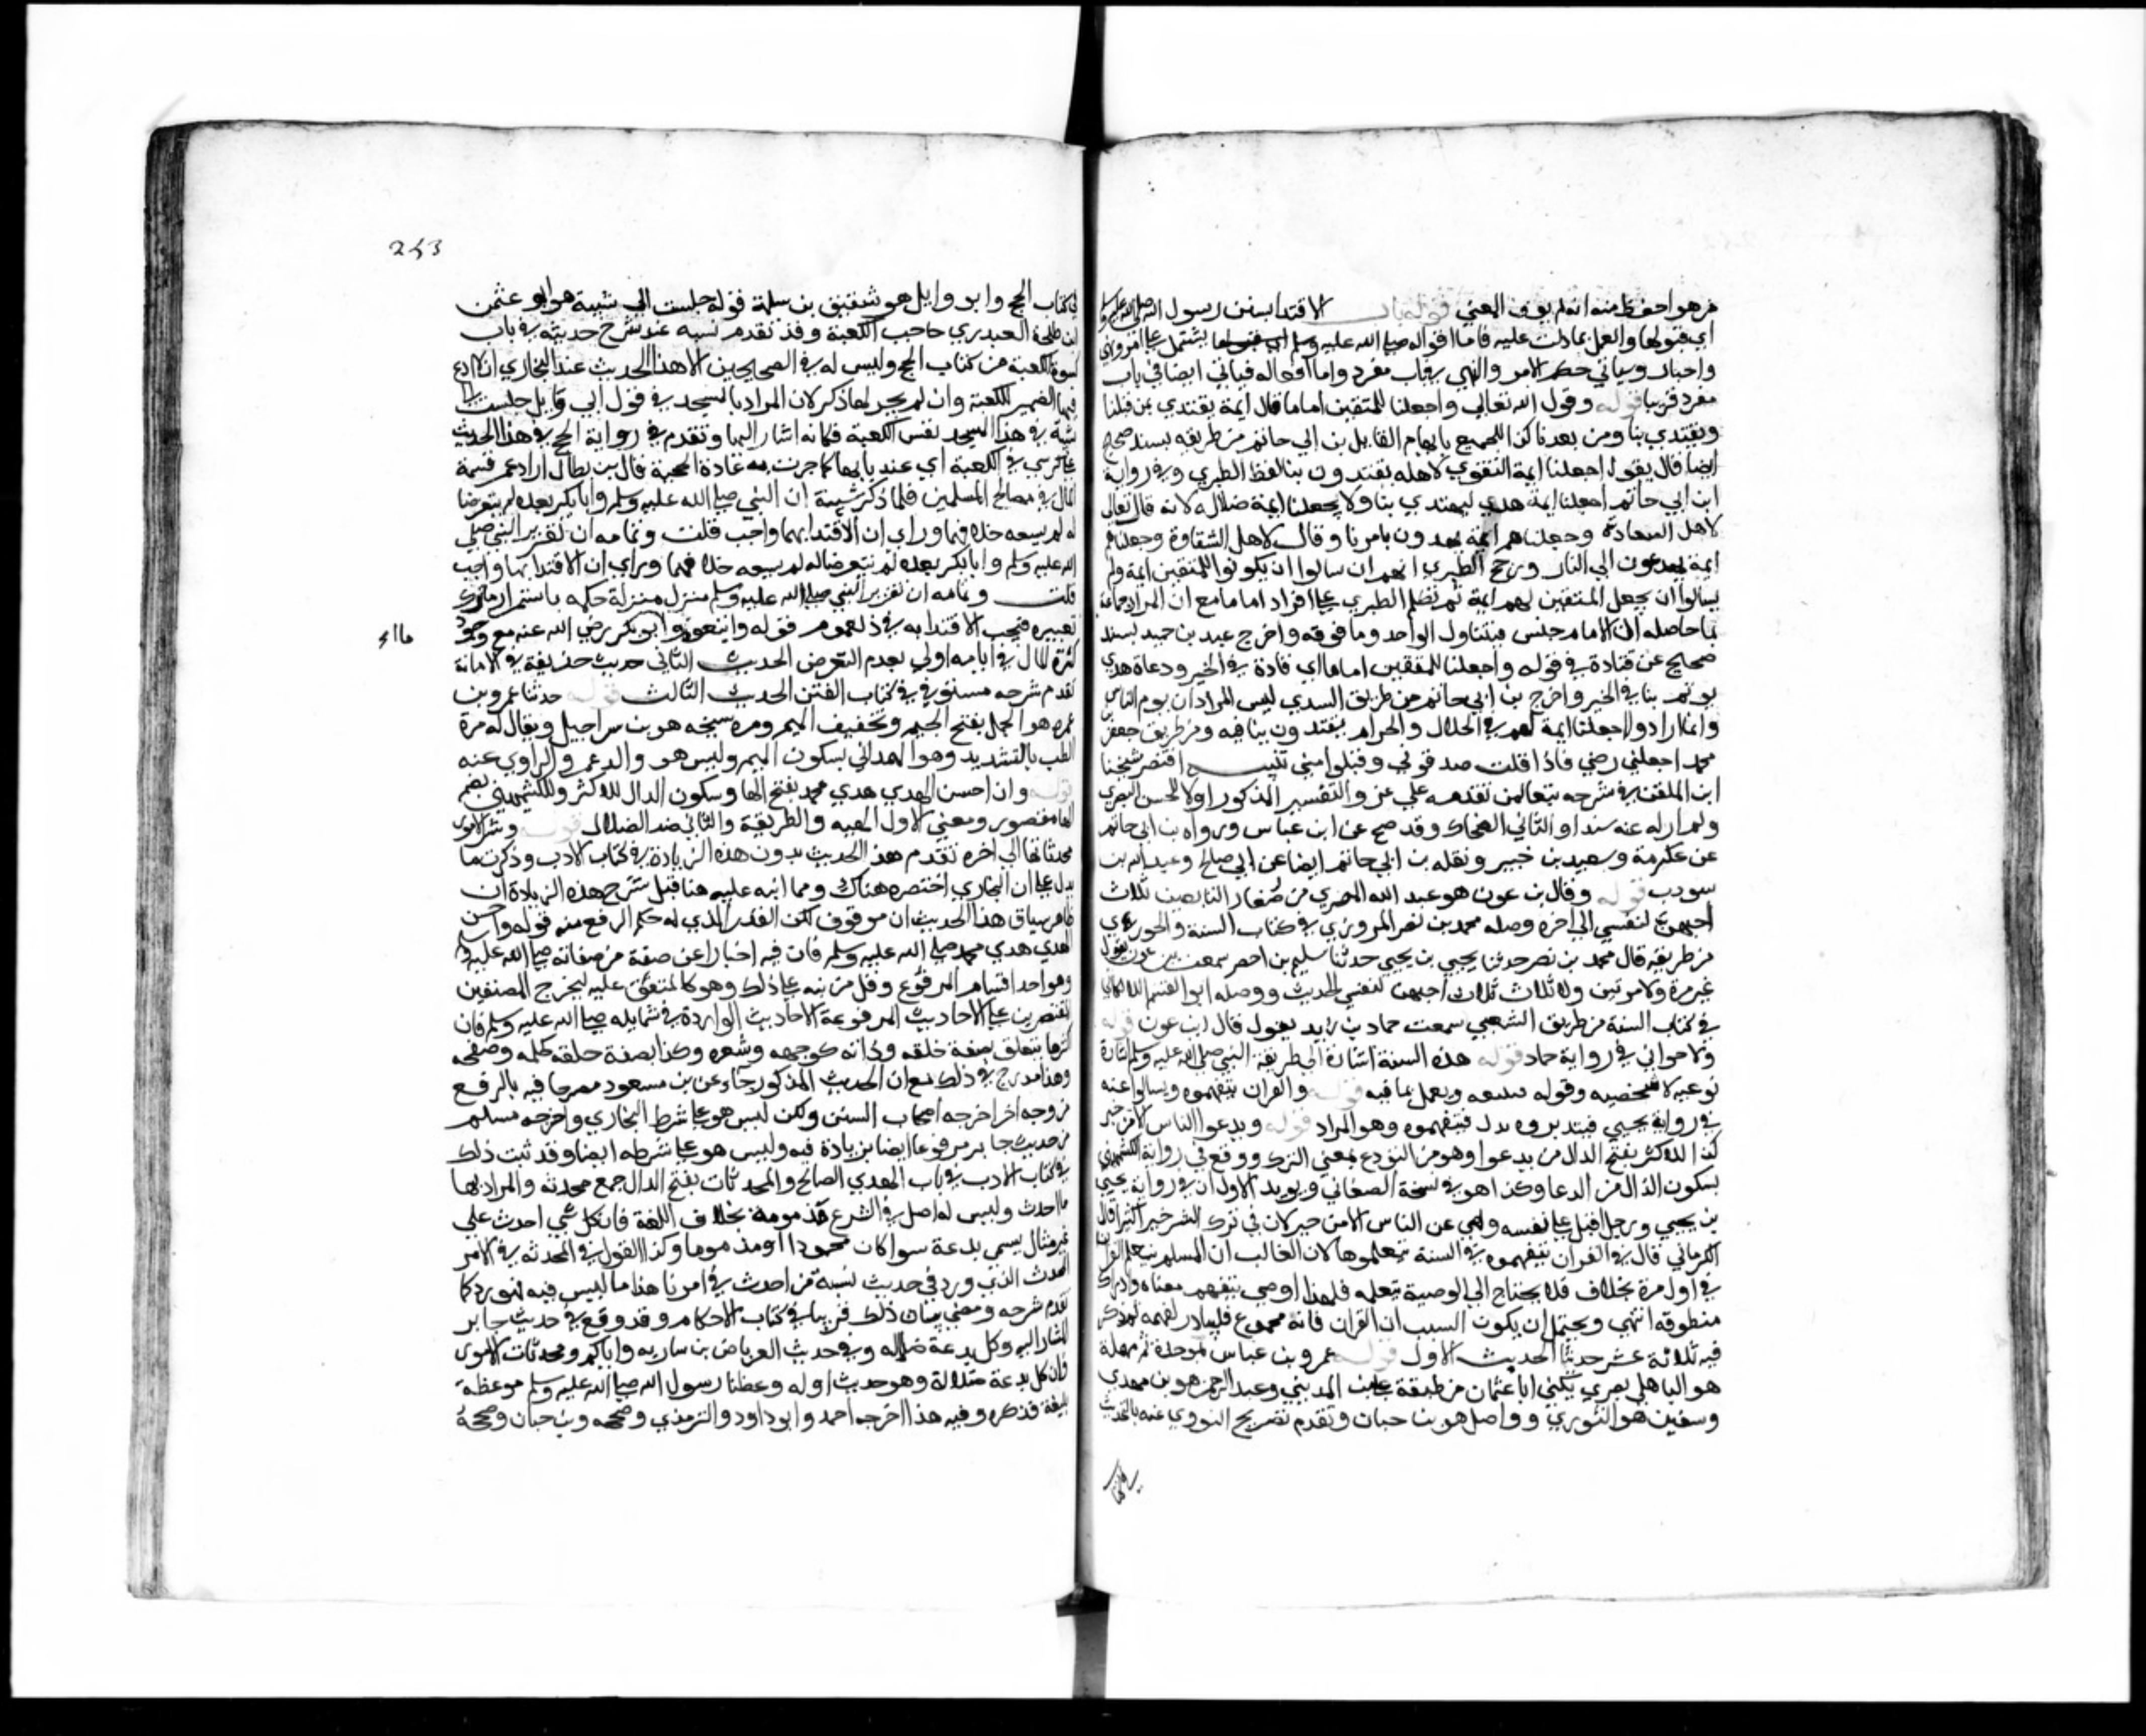 من هو احفظ منه انه لم يوف المعني قوله باب الاقتدا بسنن رسول الله صلي الله عليه وسلم
اي قبولها والعمل بما دلت عليه فاما اقواله صلي الله عليه وسلم فتشتمل علي امر ونهي
واخبار وسياتي حكم الامر والنهي في باب مفرد واما افعاله فياتي ايضا في باب
مفرد قريبا قوله وقول الله تعالي واجعلنا للمتقين اماما قال ايمة يقتدي بمن قبلنا
ويقتدي بنا ومن بعدنا كذا للجميع بابهام القايل بن ابي حاتم من طريقه بسند صحيح
ايضا قال يقول اجعلنا ايمة التقوي لاهله يقتدون بنا لفظ الطبري وفي رواية
ابن ابي حاتم اجعلنا ايمة هدي ليهتدي بنا ولا تجعلنا ايمة ضلالة لانه قال تعالي
لاهل السعادة وجعلناهم ايمة يهدون بامرنا وقال لاهل الشقاوة وجعلناهم
ايمة يدعون الي النار ورجح الطبري انهم ان سالوا ان يكونوا للمتقين ايمة ولم
يسالوا ان يجعل المتقين لهم ايمة ثم تكلم الطبري علي افراد اماما مع ان المراد جماعة
بما حاصله ان الامام جنس فيتناول الواحد وما فوقه واخرج عبد بن حميد بسند
صحيح عن قتادة في قوله واجعلنا للمتقين اماما اي قادة في الخير ودعاة هدي
يوتم بنا في الخير واخرج بن ابي حاتم من طريق السدي ليس المراد ان يوم الناس
وانما ارادوا اجعلنا ايمة لهم في الحلال والحرام يقتدون بنا فيه ومن طريق جعفر بن
محمد اجعلني رضي فاذا قلت صدقوني وقبلوا مني تنبيه اقتصر شيخنا
ابن الملقن في شرحه تبعا لمن تقدمه علي عزو التفسير المذكور اولا للحسن البصري
ولم ار له عنه سندا والثاني الضحاك وقد صح عن ابن عباس ورواه بن ابي حاتم
عن عكرمة وسعيد بن جبير ونقله بن ابي حاتم ايضا عن ابي صالح وعبد الله بن
سودب قوله وقال بن عون هو عبد الله البصري من صغار التابعين ثلاث
احبهن لنفسي الي اخره وصله محمد بن نصر المروزي في كتاب السنة والجوزقي
من طريقه قال محمد بن نصر حدثنا يحيي بن يحيي حدثنا سليم بن اخضر سمعت بن عون يقول
غير مرة ولا مرتين ولا ثلاث ثلاث احبهن لنفسي الحديث ووصله ابو القسم اللالكاي
في كتاب السنة من طريق القعنبي سمعت حماد بن زيد يقول قال ابن عون قوله
ولاخواني في رواية حماد قوله هذه السنة اشارة الي طريقة النبي صلي الله عليه وسلم اشارة
نوعية لا شخصية وقوله ويعمل بما فيه قوله والقران يتفهموه ويسالوا عنه
في رواية يحيي فيتدبروه بدل فيتفهموه وهو المراد قوله ويدعوا الناس الا من خير
كذا للاكثر بفتح الدال من يدعوا وهو من الودع بمعني الترك ووقع في رواية الكشميهني
بسكون الدال من الدعا وكذا هو في نسخة الصغاني ويويد الاول ان في رواية يحيي
بن يحيي ورجل اقبل علي نفسه ولهي عن الناس الا من خير لان في ترك الشر خيرا كثيرا قال
الكرماني قال في القران يتفهموه وفي السنة يتعلموها لان الغالب ان المسلم يتعلم القران
في اول مرة بخلاف فلا يحتاج الي الوصية بتعلمه فلهذا اوصي بتفهم معناه وادراك
منطوقه انتهي ويحتمل ان يكون السبب ان القران فانه مجموع
فيه ثلاثة عشر حديثا الحديث الاول قوله عمرو بن عباس بموحدة ثم مهملة
هو الباهلي بصري يكني ابا عثمان من طبقة علي بن المديني وعبد الرحمن هو بن مهدي
وسفين هو الثوري وواصل هو بن حبان وتقدم تصريح الثوري عنه بالتحديث
في كتاب
253
في كتاب الحج وابو وايل هو شقيق بن سلمة قوله جلست الي شيبة هو ابو عثمن
ابن طلحة العبدري حاجب الكعبة وقد تقدم نسبه عند شرح حديثه في باب
كسوة الكعبة من كتاب الحج وليس له في الصحيحين الا هذا الحديث عند البخاري ان لا ادع
فيها الضمير للكعبة وان لم يجر لها ذكر لان المراد بالمسجد في قول ابي وايل جلست الي
شيبة في هذا المسجد نفس الكعبة فكانه اشار اليها وتقدم في رواية الحج في هذا الحديث
علي كرسي في الكعبة اي عند بابها كما جرت به عادة الحجبة قال بن بطال اراد عمر قسمة
المال في مصالح المسلمين فلما ذكر شيبة ان النبي صلي الله عليه وسلم وابا بكر بعده لم يتعرضا
له لم يسعه خلافهما وراي ان الاقتدا بهما واجب قلت وتمامه ان تقرير النبي صلي
الله عليه وسلم وابا بكر بعده لم يتعرضا له لم يسعه خلافهما وراي ان الاقتدا بهما واجب
قلت وتمامه ان تقرير النبي صلي الله عليه وسلم منزل منزلة حكمه باستمرار ما ترك
تغييره فيجب الاقتدا به في ذلك لعموم قوله واتبعوه وابو بكر رضي الله عنه مع وجود
كثرة المال في ايامه اولي بعدم التعرض الحديث الثاني حديث حذيفة في الامانة
تقدم شرحه مستوفي في كتاب الفتن الحديث الثالث قوله حدثنا عمرو بن
مره هو الجمل بفتح الجيم وتخفيف الميم ومره شيخه هو بن سراحيل ويقال له مرة
الطيب بالتشديد وهو الهمداني بسكون الميم وليس هو والد عمرو الراوي عنه
قوله وان احسن الهدي هدي محمد بفتح الها وسكون الدال للاكثر وللكشميهني بضم
الها مقصور ومعني الاول الهيه والطريقة والثاني ضد الضلال قوله وشر الامور
محدثاتها الي اخره تقدم هذا الحديث بدون هذه الزيادة في كتاب الادب وذكرت ما
يدل علي ان البخاري اختصره هناك ومما انبه عليه هنا قبل شرح هذه الزيادة ان
ظاهر سياق هذا الحديث انه موقوف لكن القدر الذي له حكم الرفع منه قوله واحسن
الهدي هدي محمد صلي الله عليه وسلم فان فيه اخبارا عن صفة من صفاته صلي الله عليه وسلم
وهو احد اقسام المرفوع وقل من نبه علي ذلك وهو كالمتفق عليه لتخريج المصنفين
المقتصرين علي الاحاديث المرفوعة الاحاديث الواردة في شمايله صلي الله عليه وسلم فان
اكثرها يتعلق بصفة خلقه وذاته كوجهه وشعره وكذا بصفة خلقه كحلمه وصفحه
وهذا مدرج في ذلك مع ان الحديث المذكور جاء عن بن مسعود مصرحا فيه بالرفع
من وجه اخر اخرجه اصحاب السنن ولكن ليس هو علي شرط البخاري واخرجه مسلم
من حديث جابر مرفوعا ايضا بزيادة فيه وليس هو علي شرطه ايضا وقد ثبت ذلك
في كتاب الادب في باب الهدي الصالح والمحدثات بفتح الدال جمع محدثه والمراد بها
ما احدث وليس له اصل في الشرع مذمومة بخلاف اللغة فان كل شي احدث علي
غير مثال يسمي بدعة سوا كان محمودا او مذموما وكذا القول في المحدثه في الامر
المحدث الذي ورد في حديث من احدث في امرنا هذا ما ليس فيه فهو رد كما
تقدم شرحه ومضي بيان ذلك قريبا في كتاب الاحكام وقد وقع في حديث جابر
المشار اليه وكل بدعة ضلاله وفي حديث العرباض بن ساريه واياكم ومحدثات الامور
فان كل بدعة ضلالة وهو حديث اوله وعظنا رسول الله صلي الله عليه وسلم موعظة
بليغة فذكره وفيه هذا اخرجه احمد وابو داود والترمذي وصححه وبن حبان وصححه